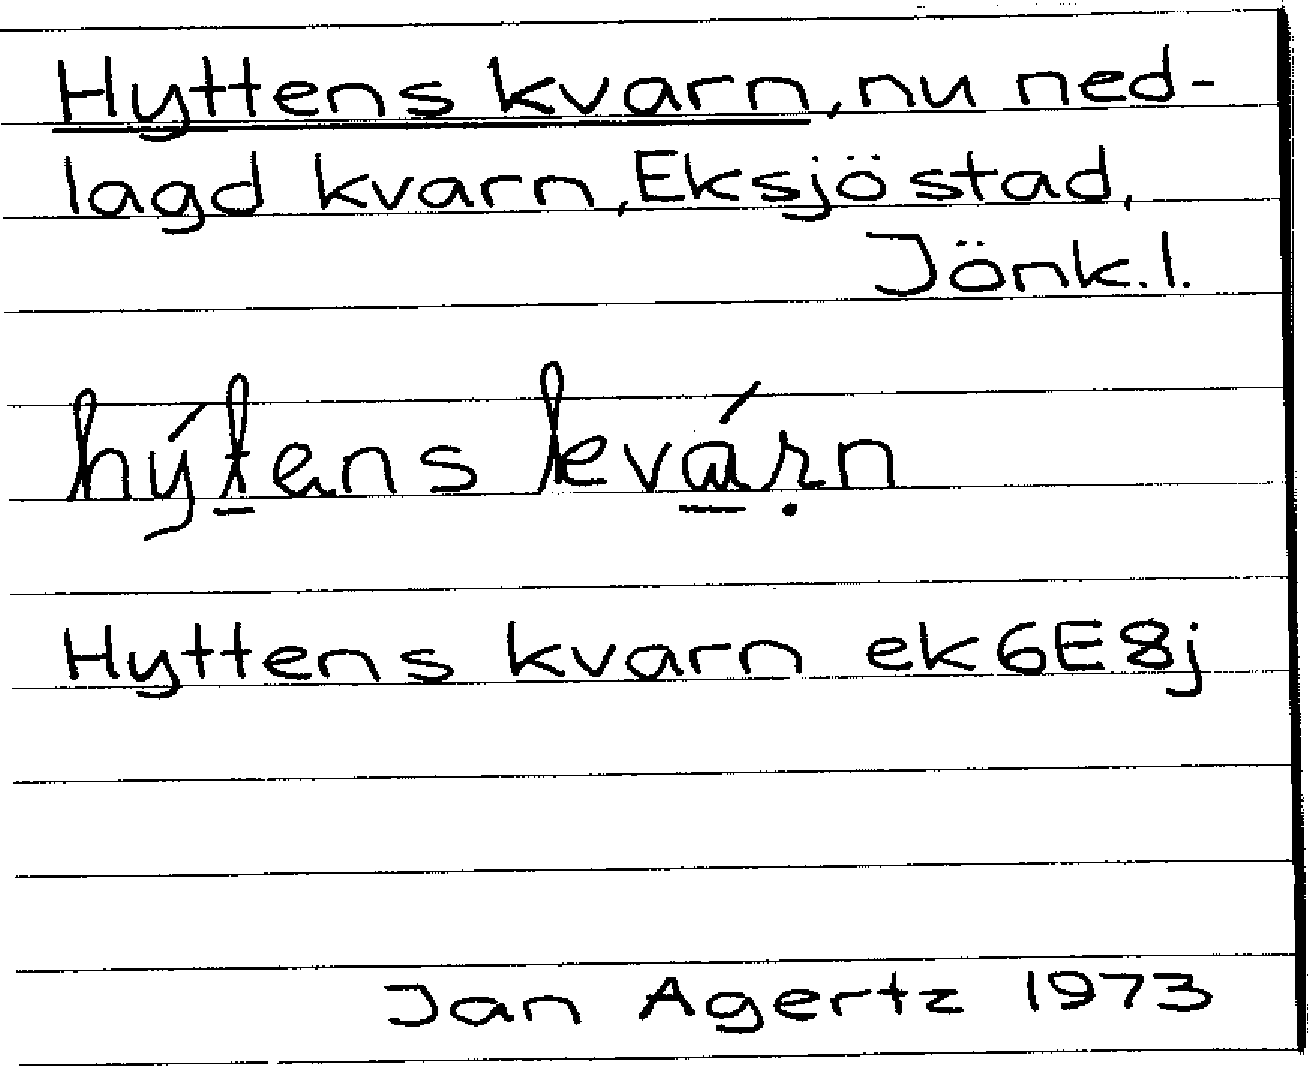 Hyttens kvarn, nu ned-
lagd kvarn, Eksjö stad,
Jönk. l.
hýt̲ens kvá̲ṛn
Hyttens kvarn ek6E8j
Jan Agertz 1973